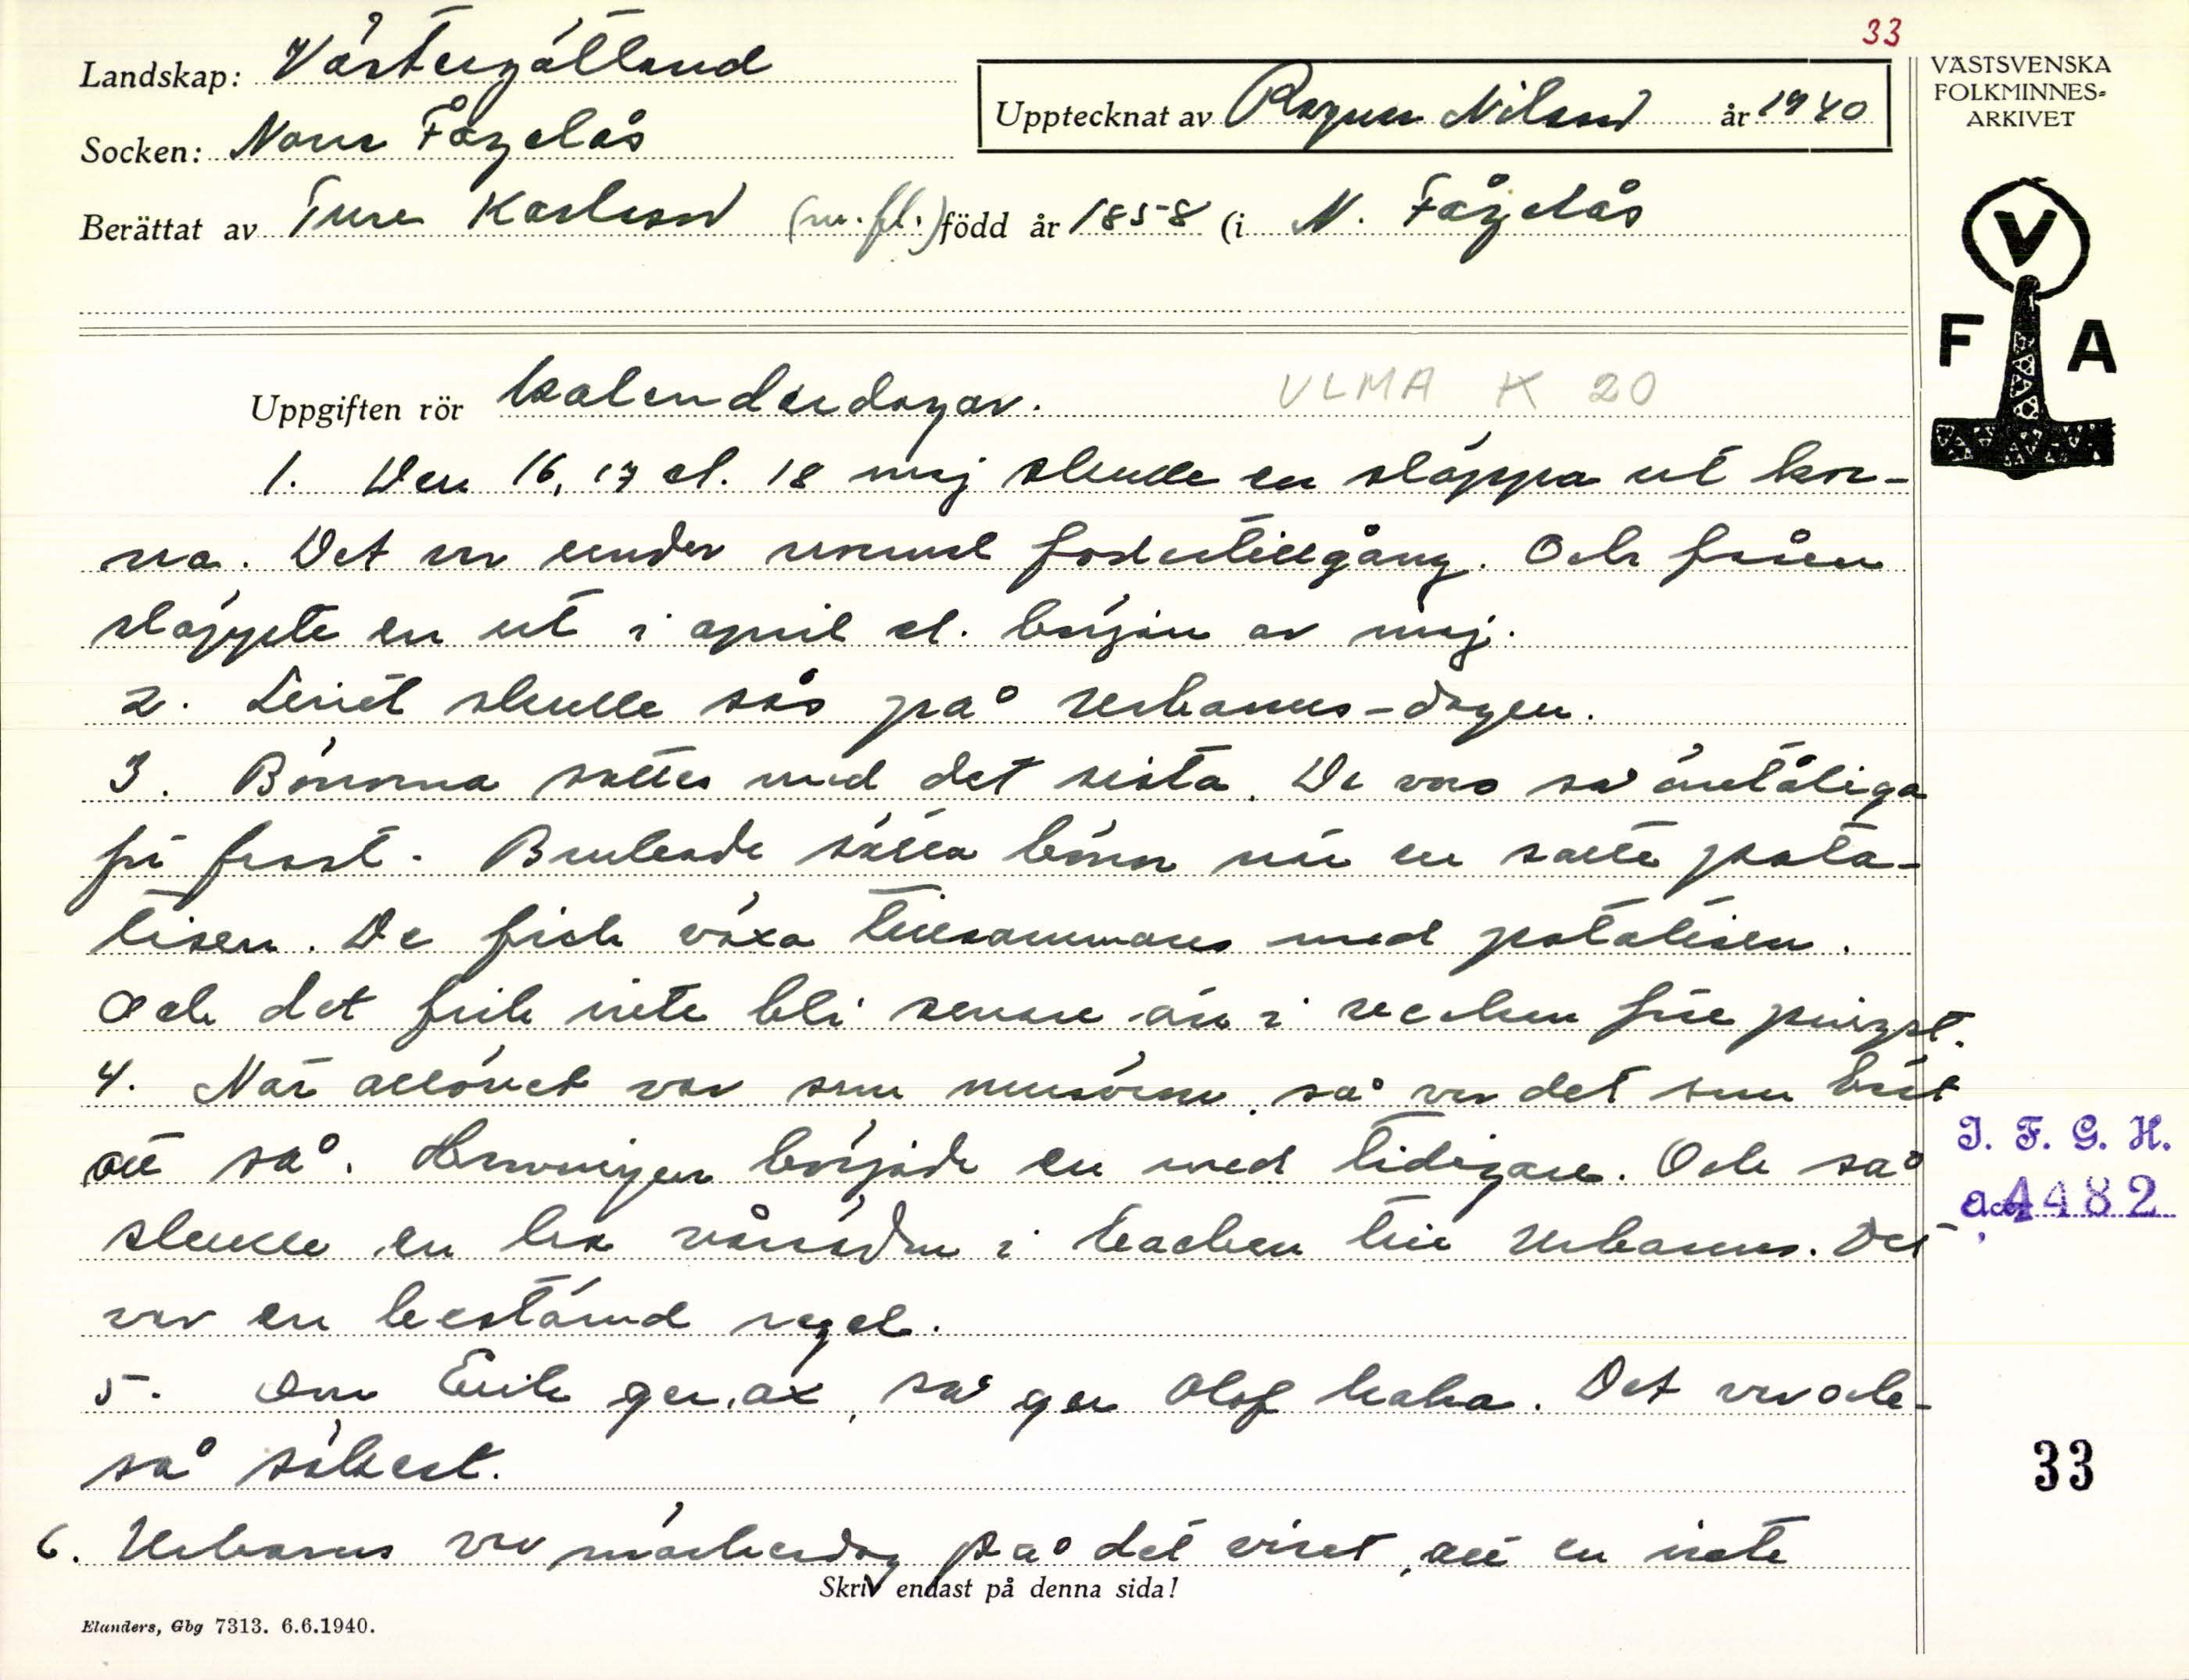 33
Landskap: Västergötland
Socken: Norra Fågelås
Upptecknat av Ragnar Nilsson år 1940
Berättat av Ture Karlsson (m. fl.) född år 1858 (i N. Fågelås
VÄSTSVENSKA
FOLKMINNES-
ARKIVET
V
F A
Uppgiften rör kalenderdagar. VLMA K 20
1. Den 16, 17 el. 18 maj skulle en släppa ut kor-
na. Det var under normal fodertillgång. Och fåren
släppte en ut i april el. början av maj.
2. Linet skulle sås på Urbanus-dagen.
3. Bönorna sattes med det sista. De voro så ömtåliga
för frost. Brukade sätta bönor när en satte pota-
tisen. De fick växa tillsammans med potatisen.
Och det fick inte bli senare än i veckan före pingst.
4. När allövet var som musöron, så var det som bäst
att så. Havningen började en med tidigare. Och så
skulle en ha vårsädn i backen till Urbanus. Det
var en bestämd regel.
5. Om Erik ger ax, så ger Olof kaka. Det var ock-
så säkert.
6. Urbanus var märkesdag på det viset, att en inte
Skriv endast på denna sida!
Elanders, Gbg 7313. 6.6.1940.
I. F. G. H.
Acc. 4482
33